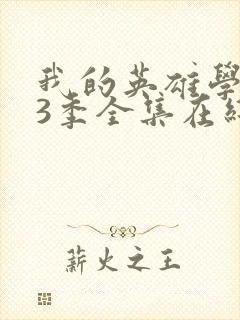 我的英雄學
3季全集在
薪火之王